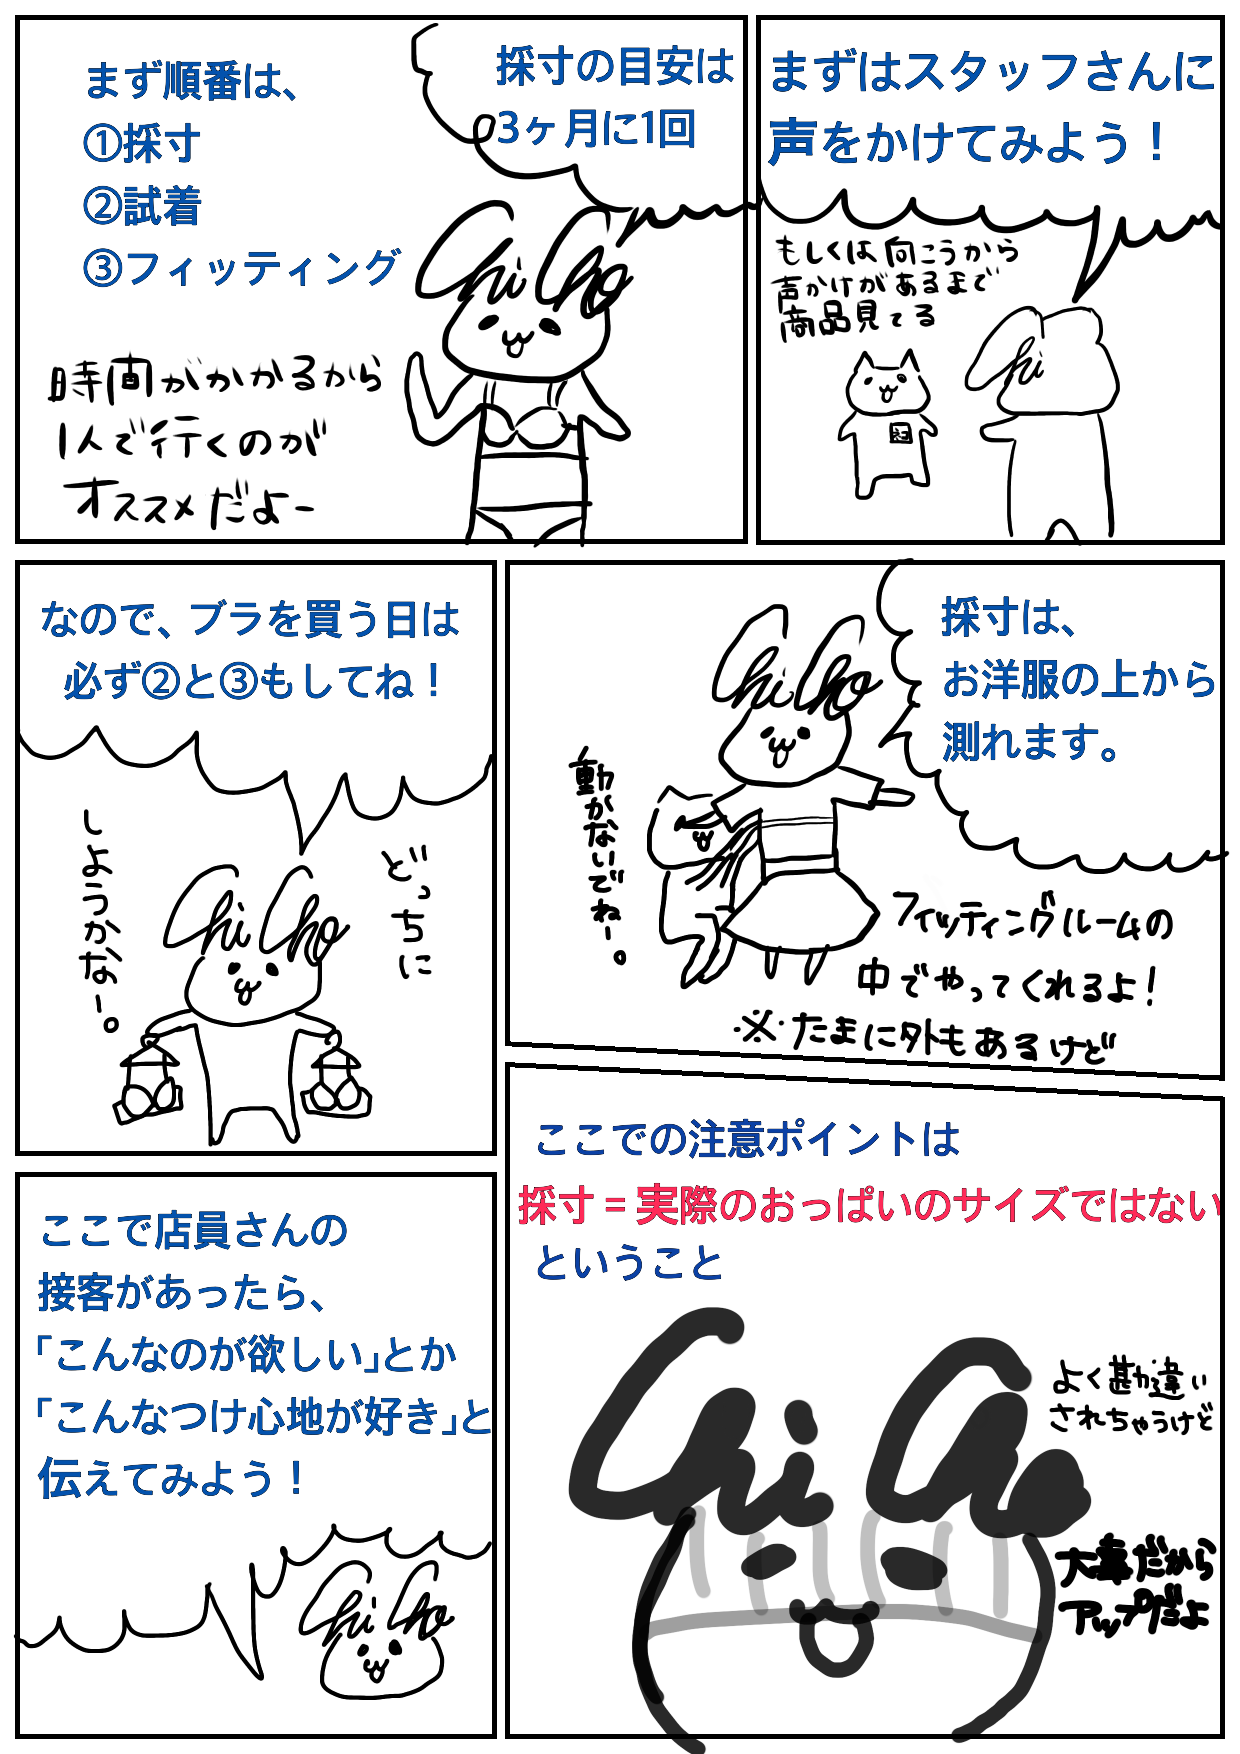 まずはスタッフさんに
声をかけてみよう！
もしくは向こうから
声かけがあるまで
商品見てる
採寸の目安は
3ヶ月に1回
まず順番は、
①採寸
②試着
③フィッティング
chi cho
時間がかかるから
1人で行くのが
オススメだよー
chi
採寸は、
お洋服の上から
測れます。
chi cho
動かないでねー。
フィッティングルームの
中でやってくれるよ！
※たまに外もあるけど
なので、ブラを買う日は
必ず②と③もしてね！
どっちに
しようかなー。
chi cho
ここでの注意ポイントは
採寸＝実際のおっぱいのサイズではない
ということ
chi cho
よく勘違い
されちゃうけど
大事だから
アップだよ
ここで店員さんの
接客があったら、
「こんなのが欲しい」とか
「こんなつけ心地が好き」と
伝えてみよう！
chi cho